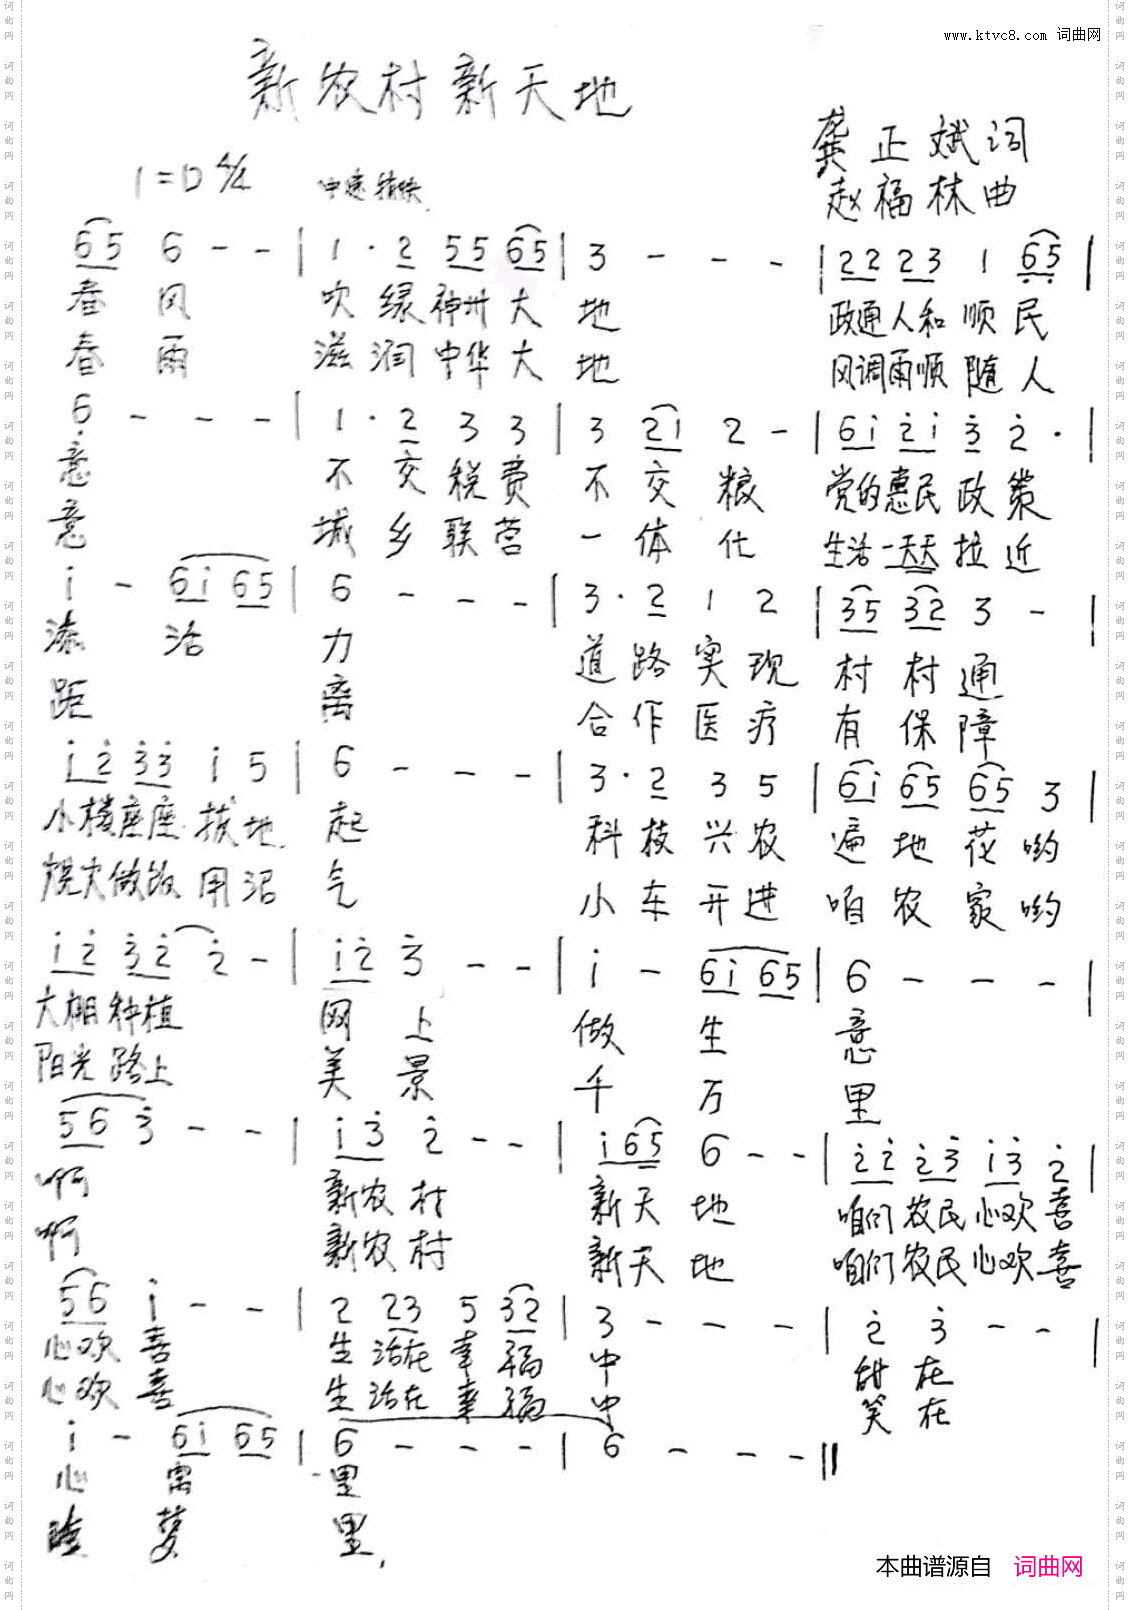 www.ktvc8.com 词曲网
新农村新天地
龚正斌词
1=D 4/4 中速稍快
赵福林曲
65 6 - - | 1 · 2 55 65 | 3 - - - | 22 23 1 65 |
春风 吹绿神州大地 政通人和顺民
春雨 滋润中华大地 风调雨顺随人
6 - - - | 1 · 2 3 3 | 3 21 2 - | 6i 2i 3 2 · |
意 不交税费 不交粮 党的惠民政策
意 城乡联营 一体化 生活一天天拉近
i - 6i 65 | 6 - - - | 3 · 2 1 2 | 35 32 3 - |
添活力 道路实现 村村通
距离 合作医疗 有保障
i2 33 i 5 | 6 - - - | 3 · 2 3 5 | 6i 65 65 3 |
小楼座座拔地起 科技兴农 遍地花哟
烧火做饭用沼气 小车开进 咱农家哟
i2 32 2 - | i2 3 - - | i - 6i 65 | 6 - - - |
大棚种植 网上 做生意
阳光路上 美景 千万里
56 3 - - | i3 2 - - | i65 6 - - | 22 23 i3 2 |
啊 新农村 新天地 咱们农民心欢喜
啊 新农村 新天地 咱们农民心欢喜
56 i - - | 2 23 5 32 | 3 - - - | 2 3 - - |
心欢喜 生活在幸福中 甜在
心欢喜 生活在幸福中 笑在
i - 6i 65 | 6 - - - | 6 - - - ||
心窝里
睡梦里
本曲谱源自 词曲网